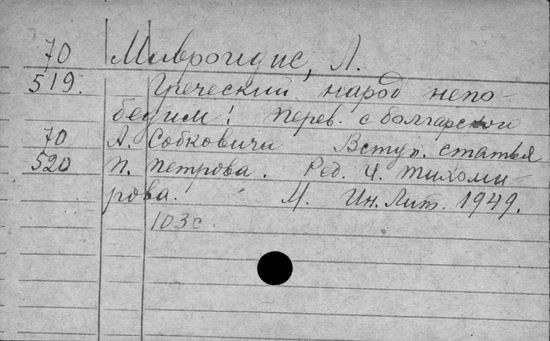 70 Мавроидис, Л.
519. Греческий народ непо-
бедим! Перев. с болгарской
70 А. Собковичи Вступ. статья
520 П. Петрова. Ред. И. Тихоми-
рова. М. Ин. Лит. 1949.
103 с.